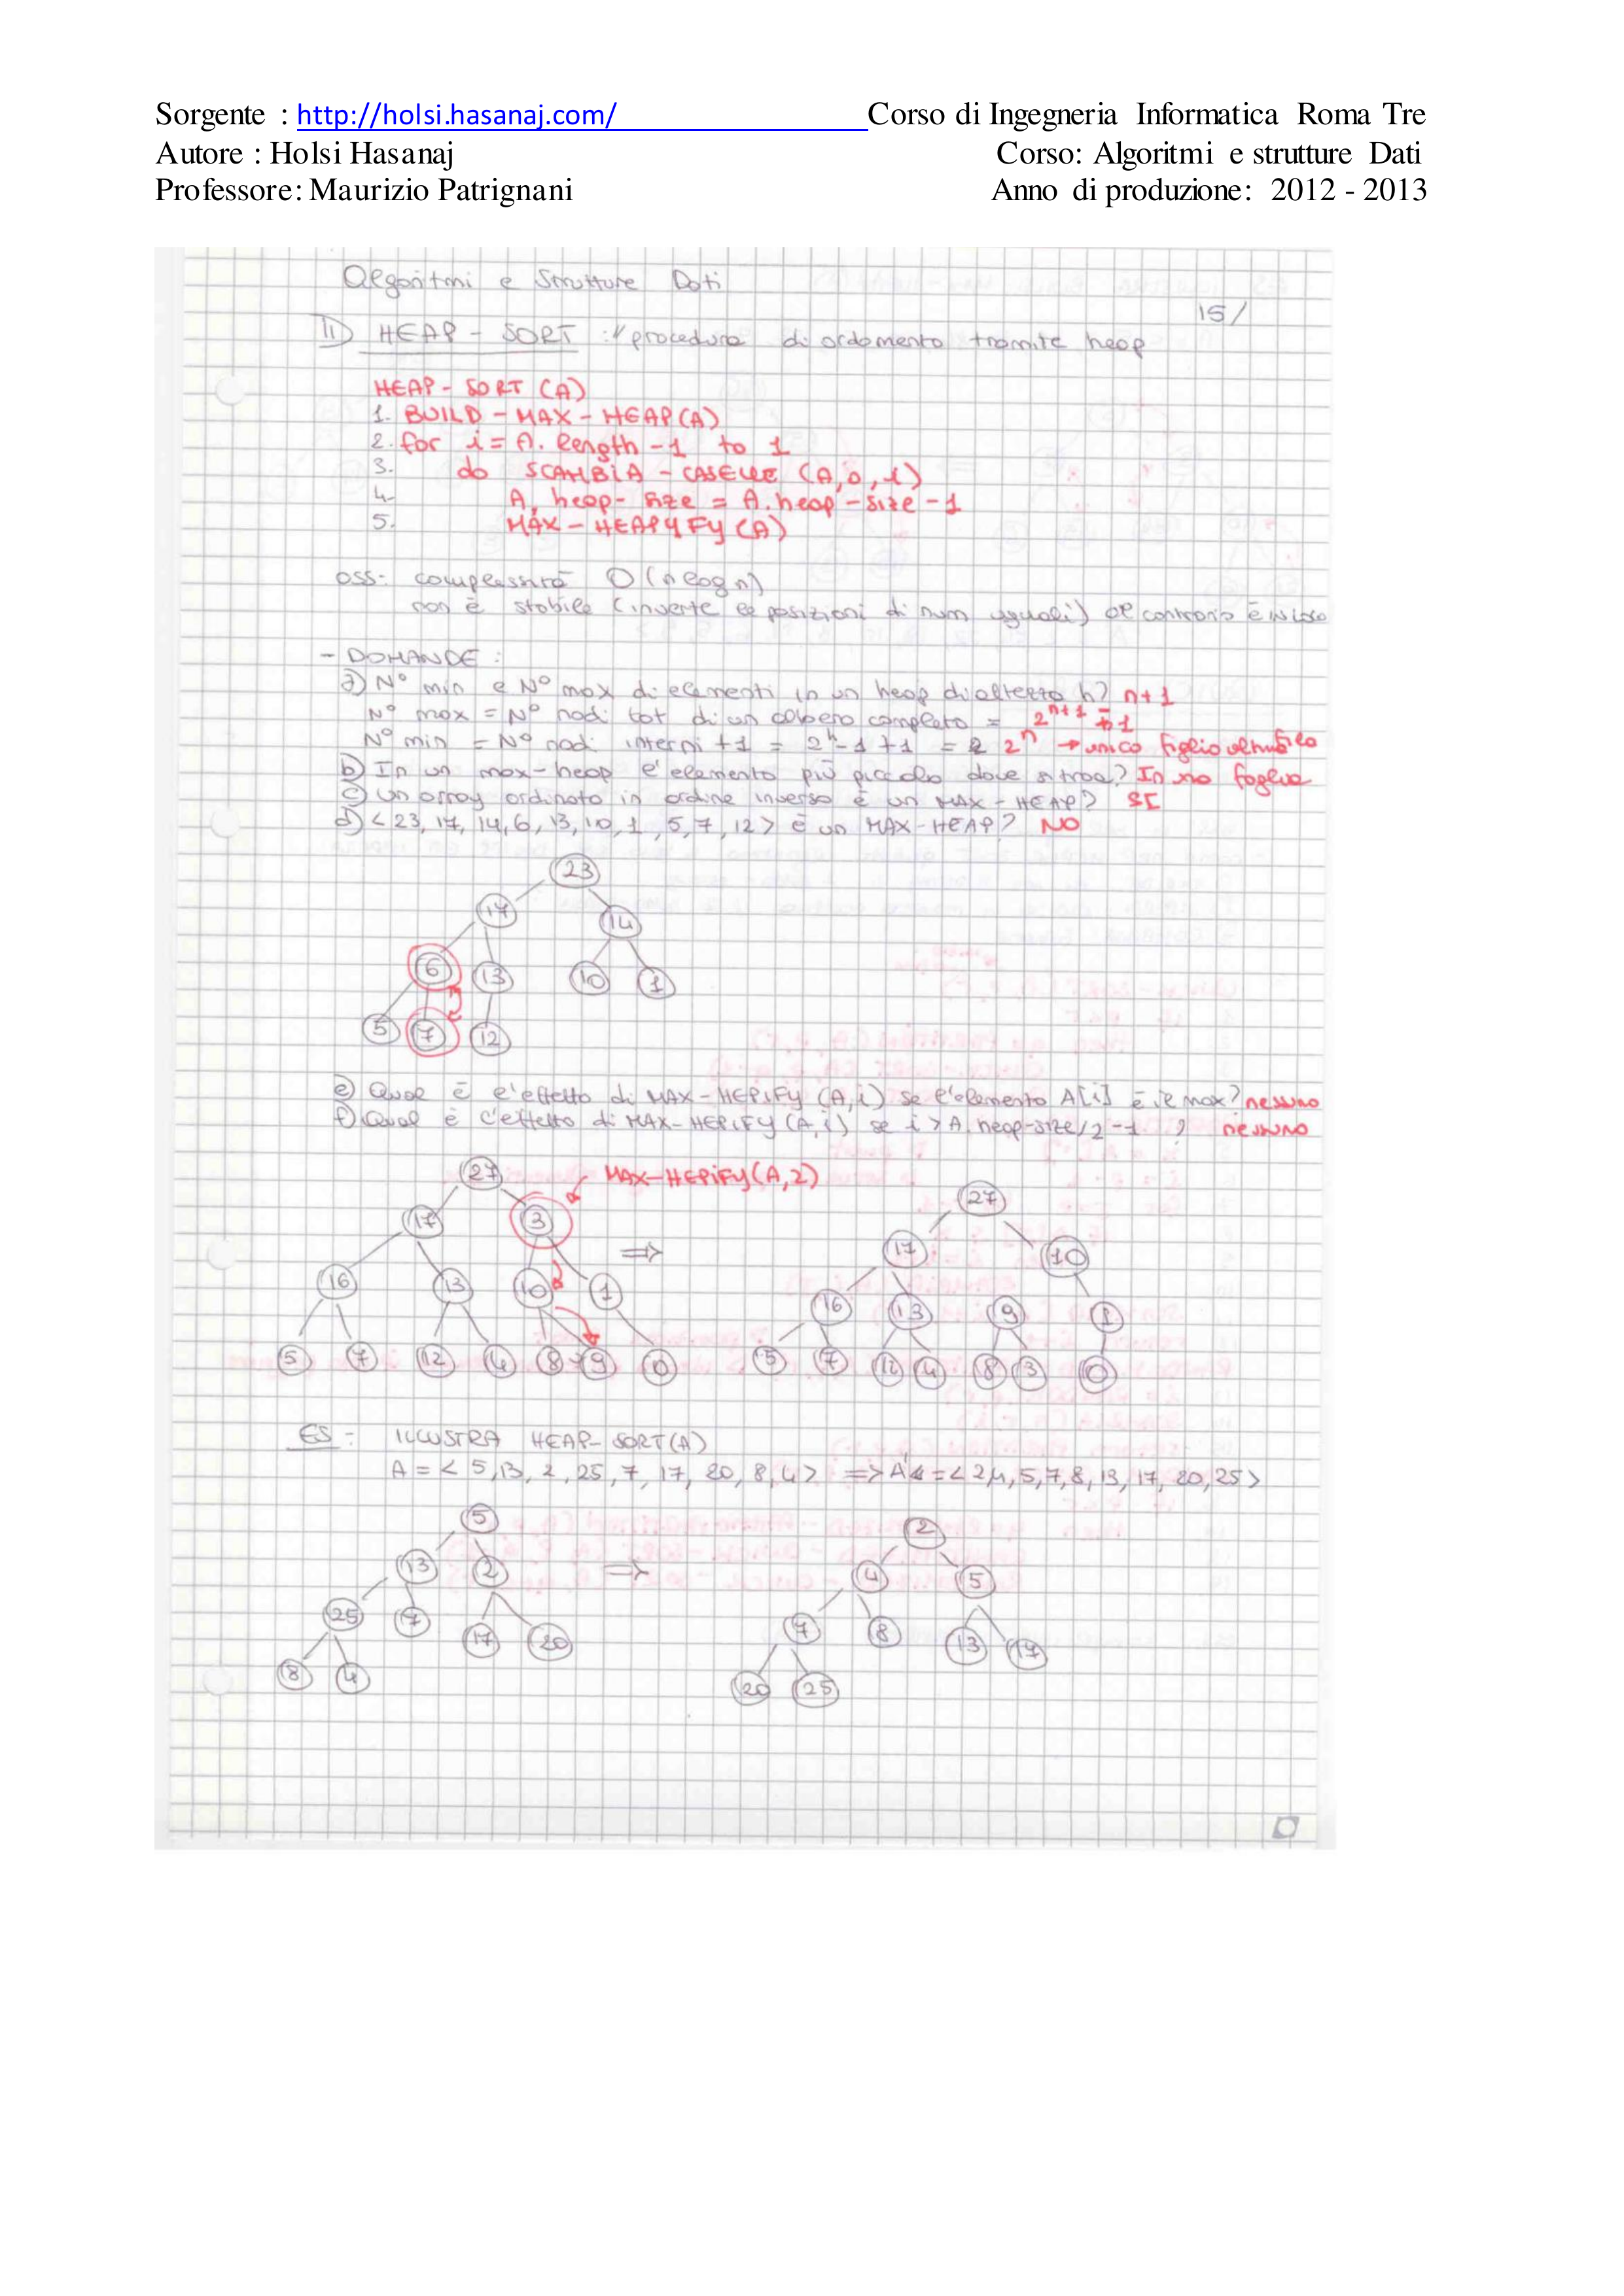 Sorgente : http://holsi.hasanaj.com/ Corso di Ingegneria Informatica Roma Tre
Autore : Holsi Hasanaj Corso: Algoritmi e strutture Dati
Professore: Maurizio Patrignani Anno di produzione: 2012 - 2013
Algoritmi e Strutture Dati
15/
11) HEAP - SORT : procedura di ordamento tramite heap
HEAP - SORT (A)
1. BUILD - MAX - HEAP (A)
2. for i = A. length - 1 to 1
3. do SCAMBIA - CASELLE (A, 0, 1)
4. A. heap - size = A. heap - size - 1
5. MAX - HEAPYFY (A)
oss: complessità O(n log n)
non è stabile (inverte le posizioni di num uguali) al contrario è in loco
- DOMANDE :
a) N° min e N° max di elementi in un heap di altezza h? n+1
N° max = N° nodi tot di un albero completo = 2^n+1 - 1
N° min = N° nodi interni + 1 = 2^h - 1 + 1 = 2^n → unico figlio
b) In un max-heap l'elemento più piccolo dove si trova? In una foglia
c) Un array ordinato in ordine inverso è un MAX-HEAP? SI
d) < 23, 17, 14, 6, 13, 10, 1, 5, 7, 12 > è un MAX-HEAP? NO
23
17 14
6 13 10 1
5 7 12
e) Qual è l'effetto di MAX-HEPIFY (A, i) se l'elemento A[i] è il max? nessuno
f) Qual è l'effetto di MAX-HEPIFY (A, i) se i > A. heap-size/2 - 1 ? nessuno
27 MAX-HEPIFY (A, 2) 27
17 3 ⇒ 17 10
16 13 10 1 16 13 9 1
5 7 12 4 8 9 0 5 7 12 4 8 3 0
ES : ILLUSTRA HEAP-SORT (A)
A = < 5, 13, 2, 25, 7, 17, 20, 8, 4 > => A' = < 2, 4, 5, 7, 8, 13, 17, 20, 25 >
5 2
13 2 ⇒ 4 5
25 7 17 20 7 8 13 17
8 4 20 25